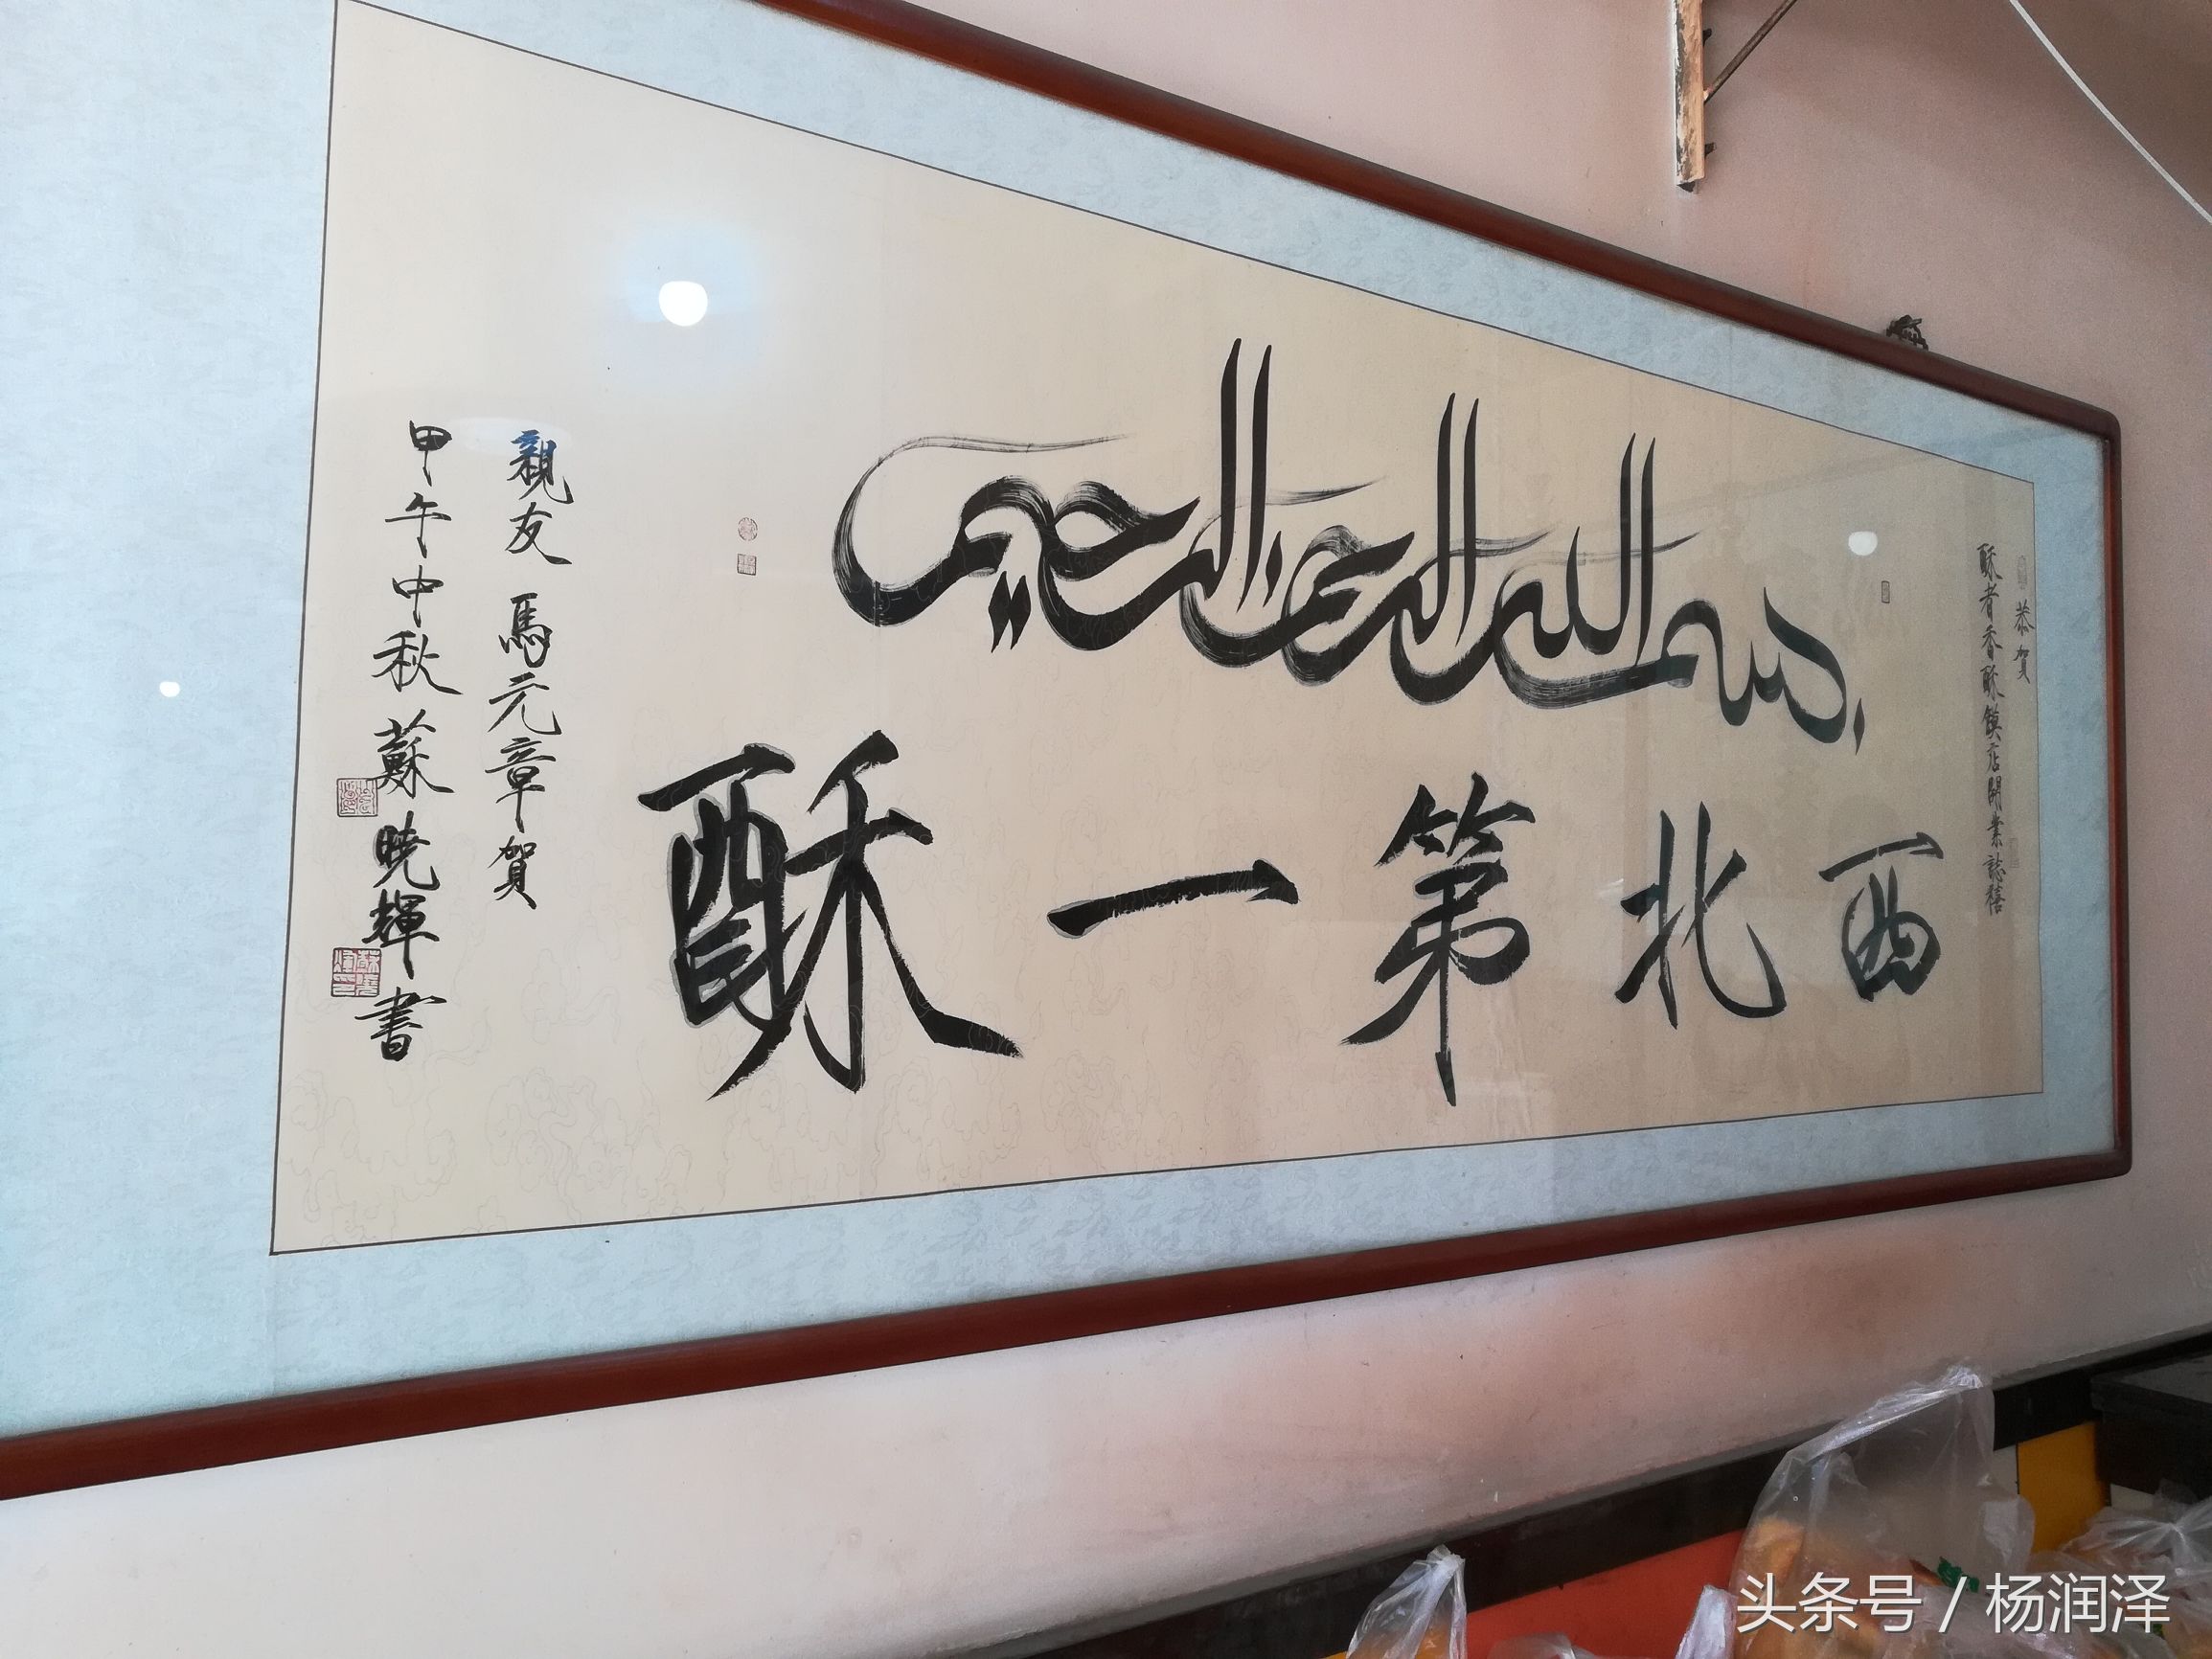 恭賀
酥者香酥饃店開業誌禧
بسم الله الرحمن الرحيم
西北第一酥
親友 馬元章賀
甲午中秋蘇曉輝書
头条号 / 杨润泽